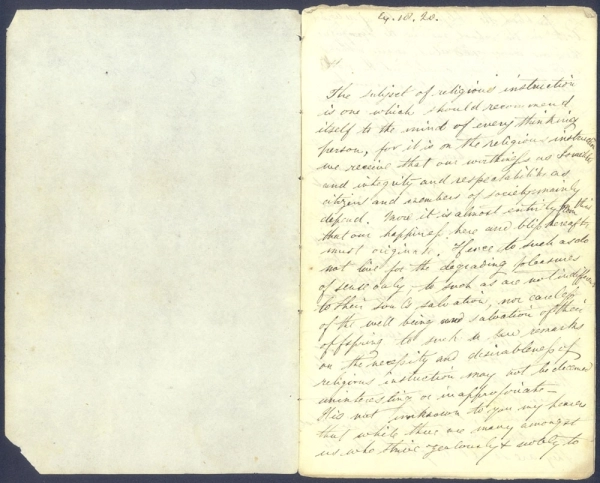 The subject of religious instruction
is one which should recommend
itself to the mind of every thinking
person, for it is on the religious instruction
we receive that our worthiness as
and integrity and respectabilities as
citizens and members of society mainly
depend. More it is almost intirely from this
that our happiness here and bliss hereafter
must originate. Hence to such as do
not live for the degrading pleasures
of sense only, to such as are not indifferent
to their soul's salvation, nor careless
of the well being and salvation of their
offspring to such a few remarks
on the necessity and desirableness of
religious instruction may not be deemed
uninteresting or inappropriate—
It is not unknown to you my hearers
that while there are many amongst
us who strive zealously & nobly to